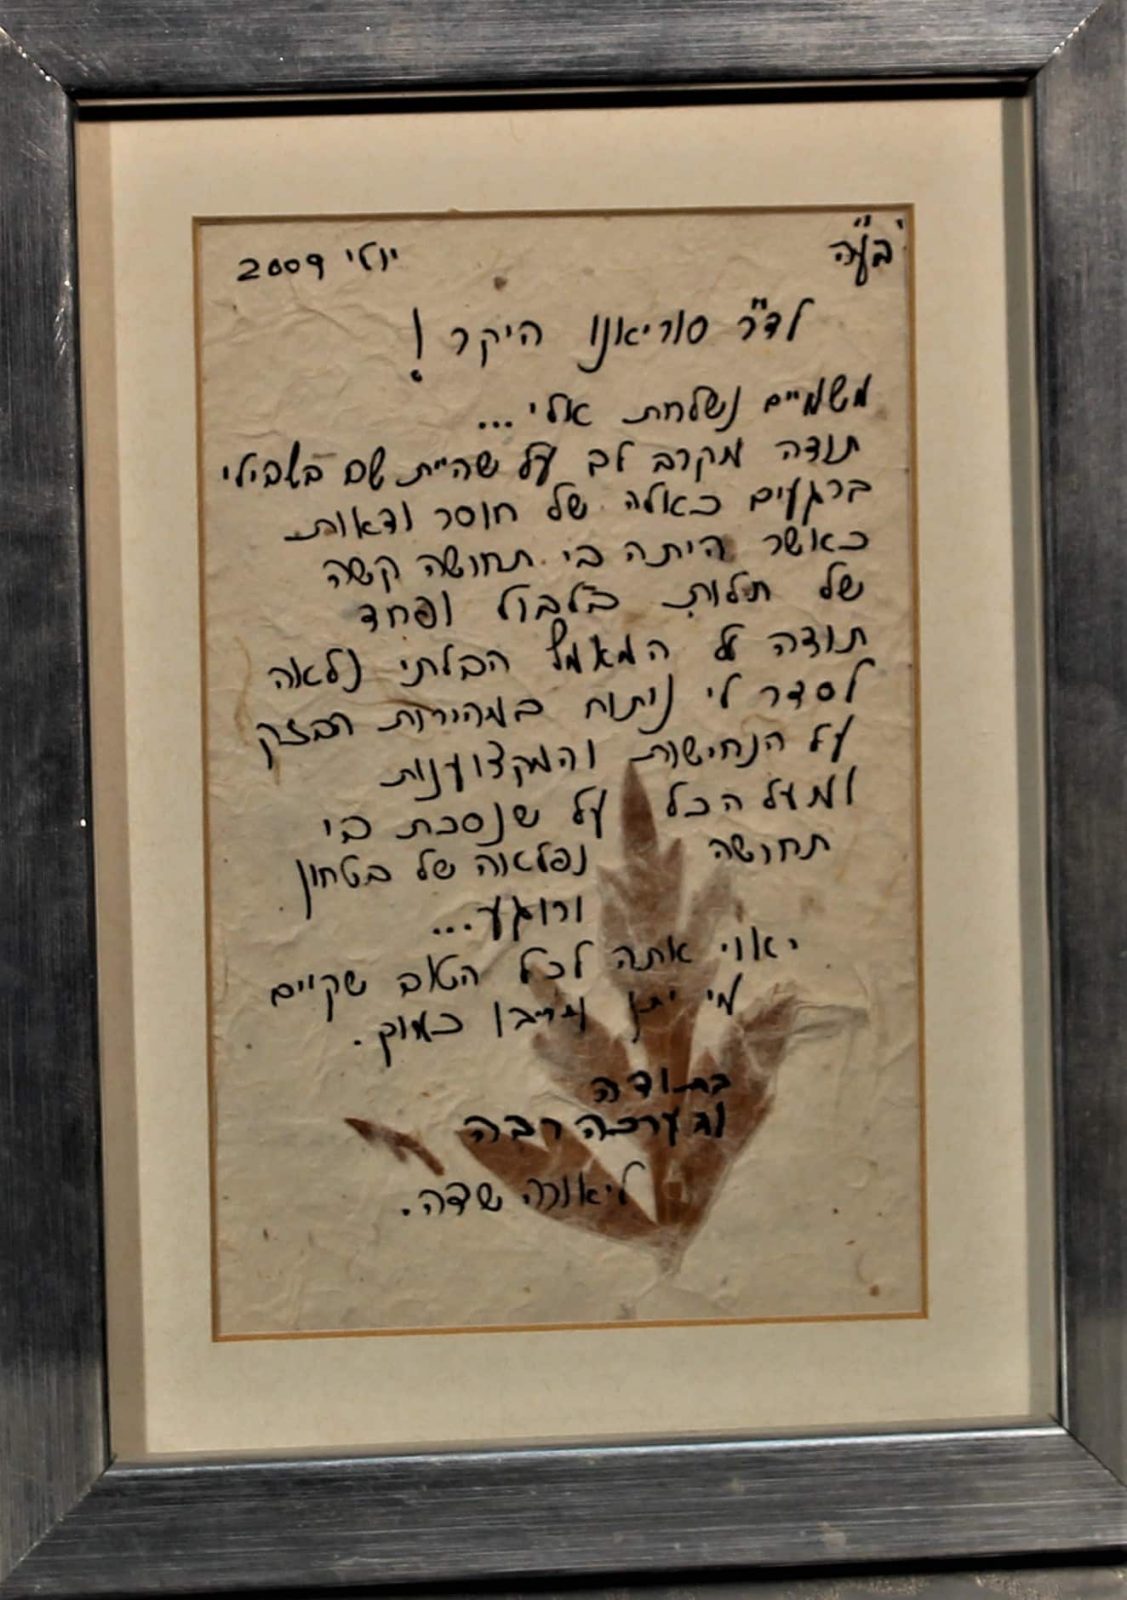 בע"ה יולי 2009
לד"ר סוריאנו היקר!
משמיים נשלחת אלי...
תודה מקרב לב על שהיית שם בשבילי
ברגעים כאלה של חוסר ודאות
כאשר היתה בי תחושה קשה
של תלות בלבול ופחד
תודה על המאמץ הבלתי נלאה
לסדר לי ניתוח במהירות הבזק
על הנחישות והמקצוענות
ומעל הכל על שנסכת בי
תחושה נפלאה של בטחון
ורוגע...
ראוי אתה לכל הטוב שקיים
מי יתן וירבו כמוך.
בתודה
ובערכה רבה
ליאורה שדה.